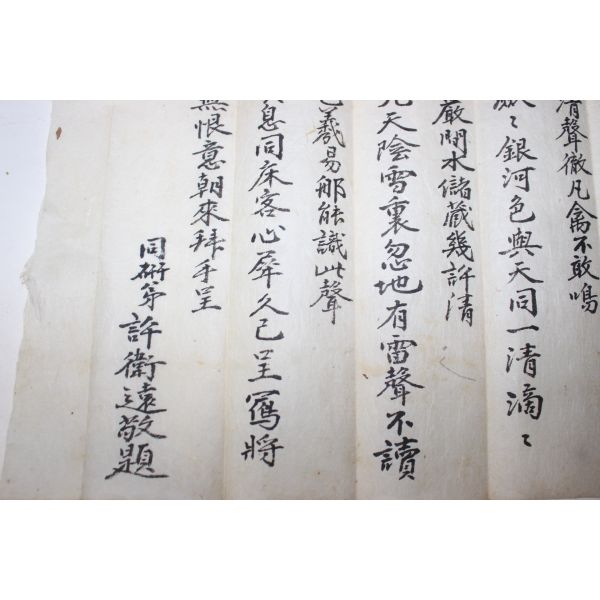 清聲徹凡禽不敢鳴
銀河色與天同一清滴〻
嚴閒水儲藏幾許清
天陰雪裏忽地有雷聲不讀
羲易那能識此聲
息同床客心犀久已呈寫將
無恨意朝來拜手呈
同硏弟許衛遠敬題